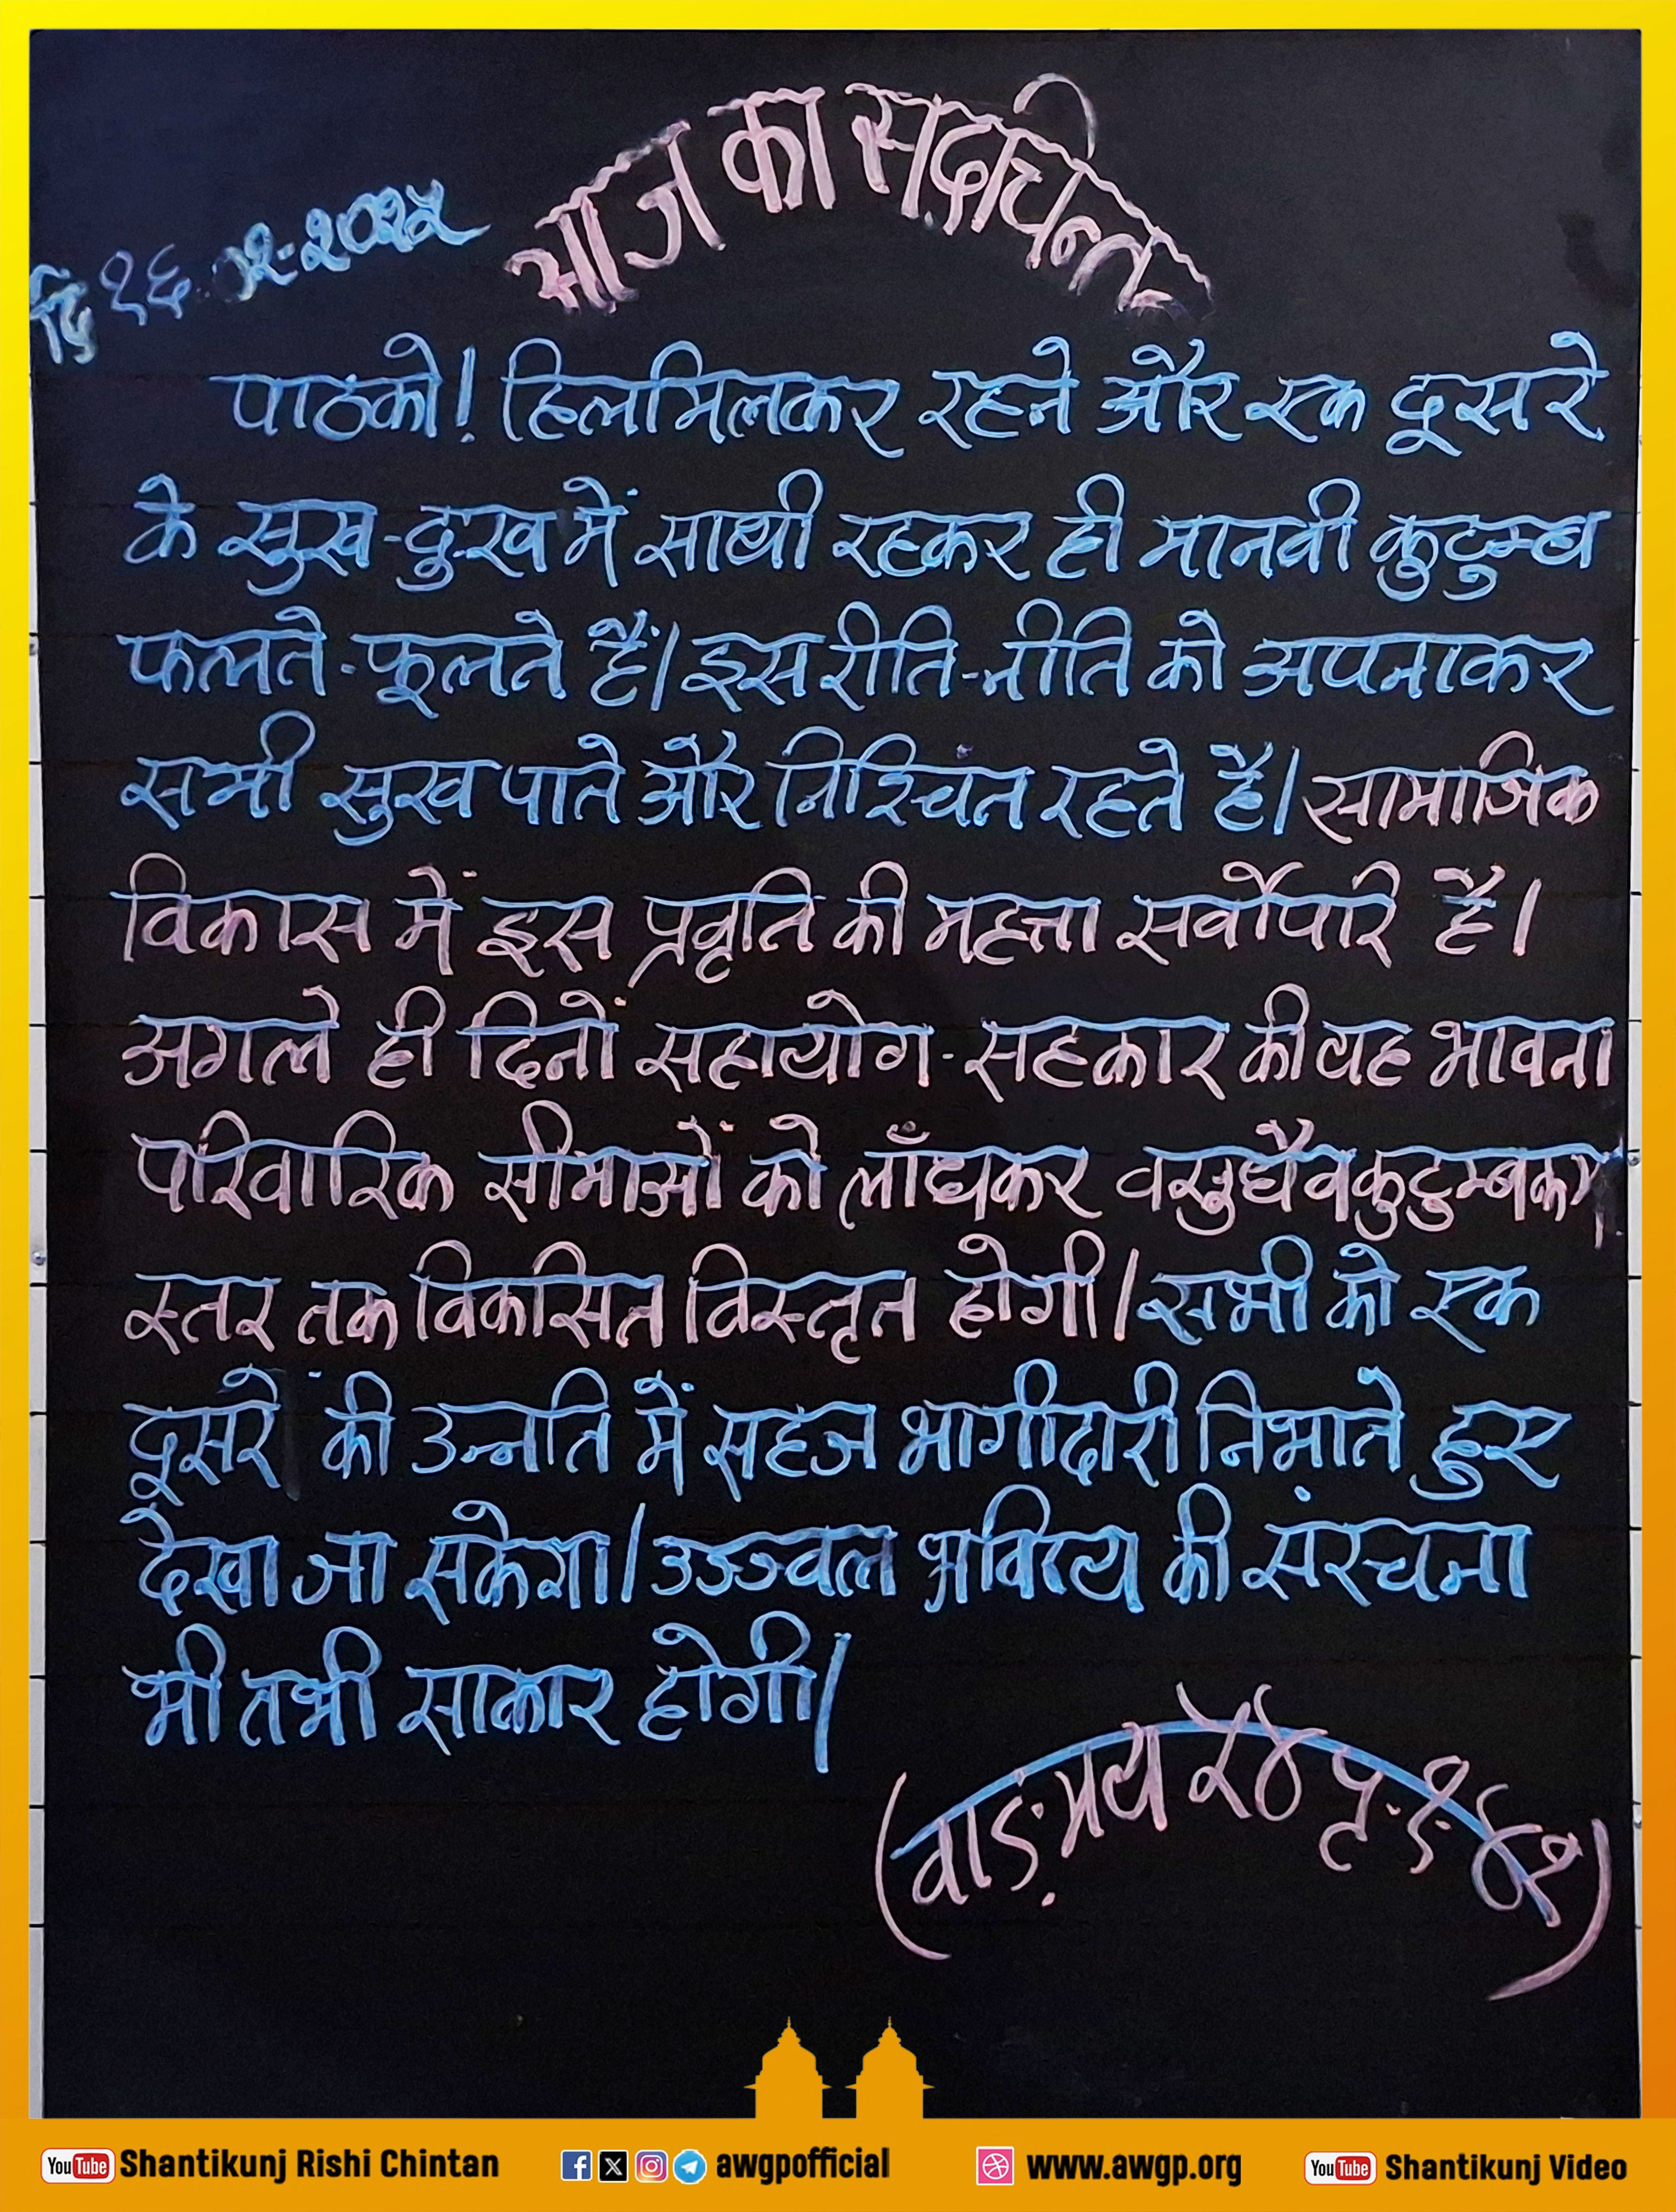 आज का सद्चिन्तन
दि १६.०२-२०२५
पाठको! हिलमिलकर रहने और एक दूसरे
के सुख-दुःख में साथी रहकर ही मानवी कुटुम्ब
फलते-फूलते हैं। इस रीति-नीति को अपनाकर
सभी सुख पाते और निश्चिंत रहते हैं। सामाजिक
विकास में इस प्रवृति की महत्ता सर्वोपरि है।
अगले ही दिनों सहायोग-सहकार की यह भावना
परिवारिक सीमाओं को लाँघकर वसुधैव कुटुम्बकम्
स्तर तक विकसित विस्तृत होगी। सभी को एक
दूसरे की उन्नति में सहज भागीदारी निभाते हुए
देखा जा सकेगा। उज्ज्वल भविष्य की संरचना
भी तभी साकार होगी।
(वाङ्मय २४ पृ.-१.४१)
YouTube Shantikunj Rishi Chintan awgpofficial www.awgp.org YouTube Shantikunj Video